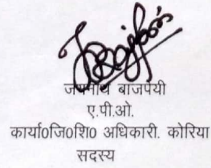 जगन्नाथ बाजपेयी
ए.पी.ओ.
कार्या0जि0शि0 अधिकारी. कोरिया
सदस्य